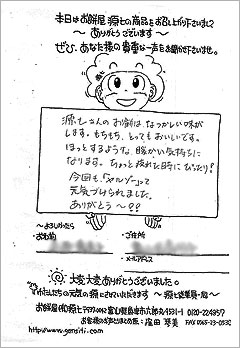 本日はお餅屋 源七の商品をお召し上がり下さいまして
～ありがとうございます～
ぜひ、あなた様の貴重な一声をお聞かせ下さいませ。
源七さんのお餅はなつかしい味が
します。もちもち、とってもおいしいです。
ほっとするような、暖かい気持ちに
なります。ちょっと疲れた時にぴったり!
今回も、「ヤルゾー」って
元気づけられました。
ありがとう～!!
～よろしかったら
お名前
ご住所
メールアドレス
大変大変ありがとうございました。
わたしたちの元気の源にさせていただきます ～源七従業員一同～
お餅屋(有)源七 富山県魚津市六郎丸4531-1 0120-224857
FAX 0765-23-0532
http://www.gensiti.com